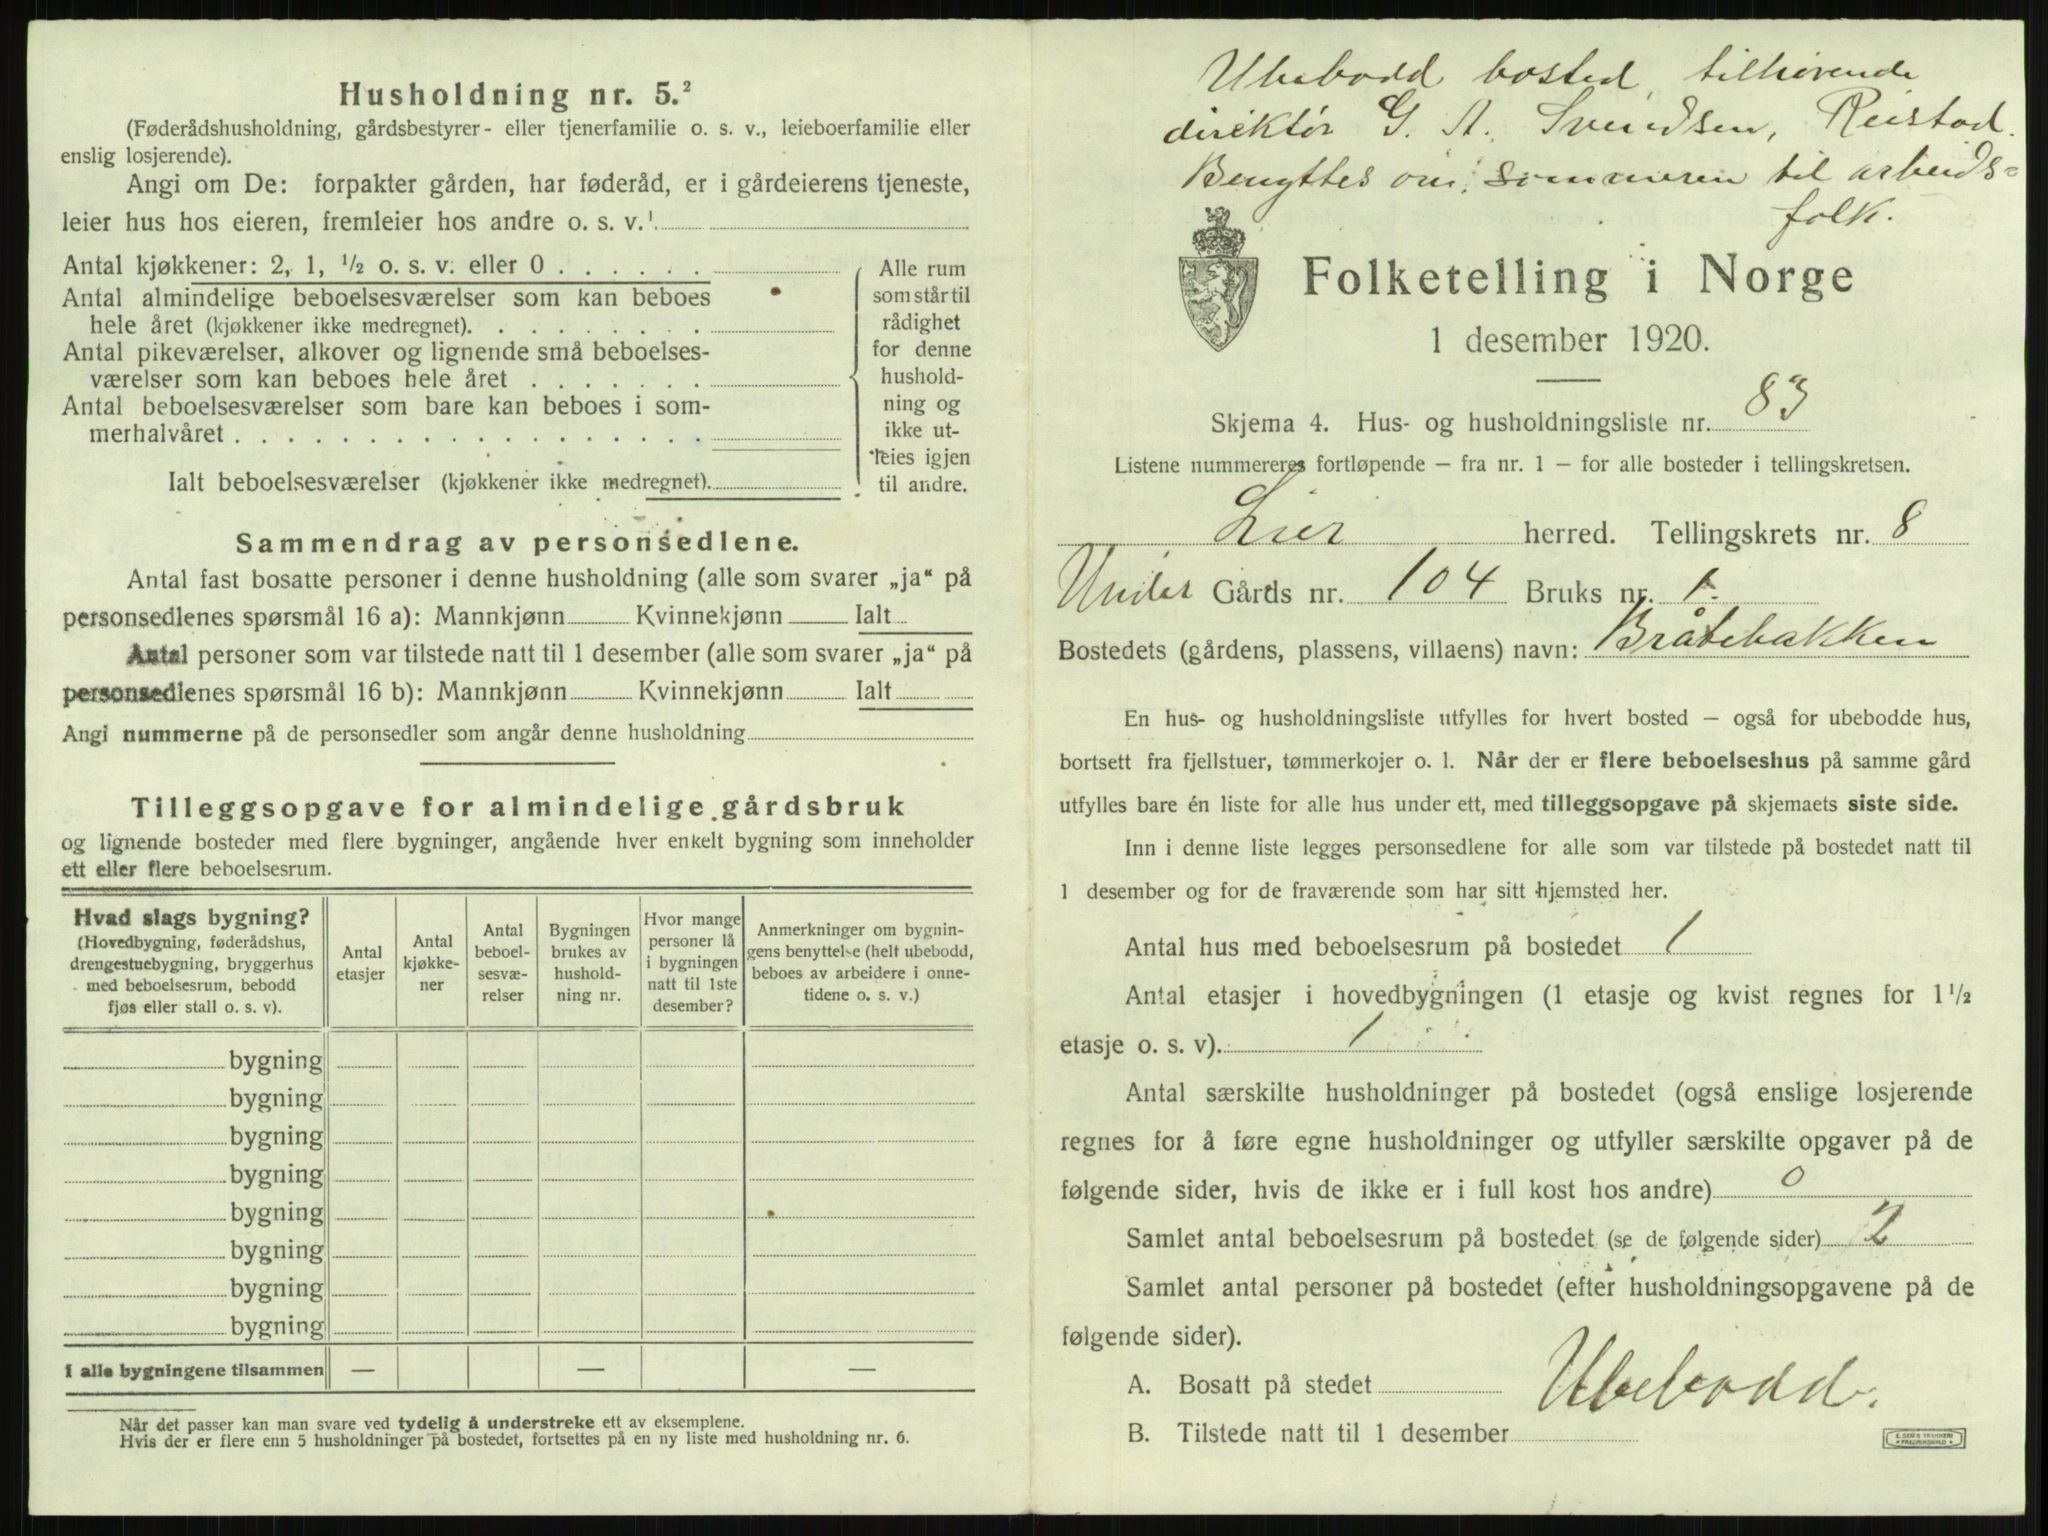 Husholdning nr. 5.²
(Føderådshusholdning, gårdsbestyrer- eller tjenerfamilie o. s. v., leieboerfamilie eller
enslig losjerende).
Angi om De: forpakter gården, har føderåd, er i gårdeierens tjeneste,
leier hus hos eieren, fremleier hos andre o. s. v.¹
Antal kjøkkener: 2, 1, ½ o. s. v. eller 0 . . . . . .
Antal almindelige beboelsesværelser som kan beboes
hele året (kjøkkener ikke medregnet). . . . . . . . .
Antal pikeværelser, alkover og lignende små beboelses-
værelser som kan beboes hele året . . . . . . .
Antal beboelsesværelser som bare kan beboes i som-
merhalvåret . . . . . . . . . . . . . . . . . .
Ialt beboelsesværelser (kjøkkener ikke medregnet).
Alle rum
som står til
rådighet
for denne
hushold-
ning og
ikke ut-
leies igjen
til andre.
Sammendrag av personsedlene.
Antal fast bosatte personer i denne husholdning (alle som svarer „ja“ på
personsedlenes spørsmål 16 a): Mannkjønn Kvinnekjønn Ialt
Antal personer som var tilstede natt til 1 desember (alle som svarer „ja“ på
personsedlenes spørsmål 16 b): Mannkjønn Kvinnekjønn Ialt
Angi nummerne på de personsedler som angår denne husholdning
Tilleggsopgave for almindelige gårdsbruk
og lignende bosteder med flere bygninger, angående hver enkelt bygning som inneholder
ett eller flere beboelsesrum.
Hvad slags bygning?
(Hovedbygning, føderådshus,
drengestuebygning, bryggerhus
med beboelsesrum, bebodd
fjøs eller stall o. s. v).
Antal
etasjer
Antal
kjøkke-
ner
Antal
beboel-
sesvæ-
relser
Bygningen
brukes av
hushold-
ning nr.
Hvor mange
personer lå
i bygningen
natt til 1ste
desember?
Anmerkninger om bygnin-
gens benyttelse (helt ubebodd,
beboes av arbeidere i onne-
tidene o. s. v.)
bygning
bygning
bygning
bygning
bygning
bygning
bygning
bygning
I alle bygningene tilsammen — — —
Når det passer kan man svare ved tydelig å understreke ett av eksemplene.
Hvis der er flere enn 5 husholdninger på bostedet, fortsettes på en ny liste med husholdning nr. 6.
Ubebodd bosted, tilhørende
direktør G. A. Svendsen, Reistad.
Benyttes om sommeren til arbeids=
folk.
Folketelling i Norge
1 desember 1920.
Skjema 4. Hus- og husholdningsliste nr. 83
Listene nummereres fortløpende – fra nr. 1 – for alle bosteder i tellingskretsen.
Lier herred. Tellingskrets nr. 8
Under Gårds nr. 104 Bruks nr. 1.
Bostedets (gårdens, plassens, villaens) navn: Bråtebakken
En hus- og husholdningsliste utfylles for hvert bosted – også for ubebodde hus,
bortsett fra fjellstuer, tømmerkojer o. l. Når der er flere beboelseshus på samme gård
utfylles bare én liste for alle hus under ett, med tilleggsopgave på skjemaets siste side.
Inn i denne liste legges personsedlene for alle som var tilstede på bostedet natt til
1 desember og for de fraværende som har sitt hjemsted her.
Antal hus med beboelsesrum på bostedet 1
Antal etasjer i hovedbygningen (1 etasje og kvist regnes for 1½
etasje o. s. v). 1
Antal særskilte husholdninger på bostedet (også enslige losjerende
regnes for å føre egne husholdninger og utfyller særskilte opgaver på de
følgende sider, hvis de ikke er i full kost hos andre) 0
Samlet antal beboelsesrum på bostedet (se de følgende sider) 2
Samlet antal personer på bostedet (efter husholdningsopgavene på de
følgende sider).
A. Bosatt på stedet
Ubebodd.
B. Tilstede natt til 1 desember